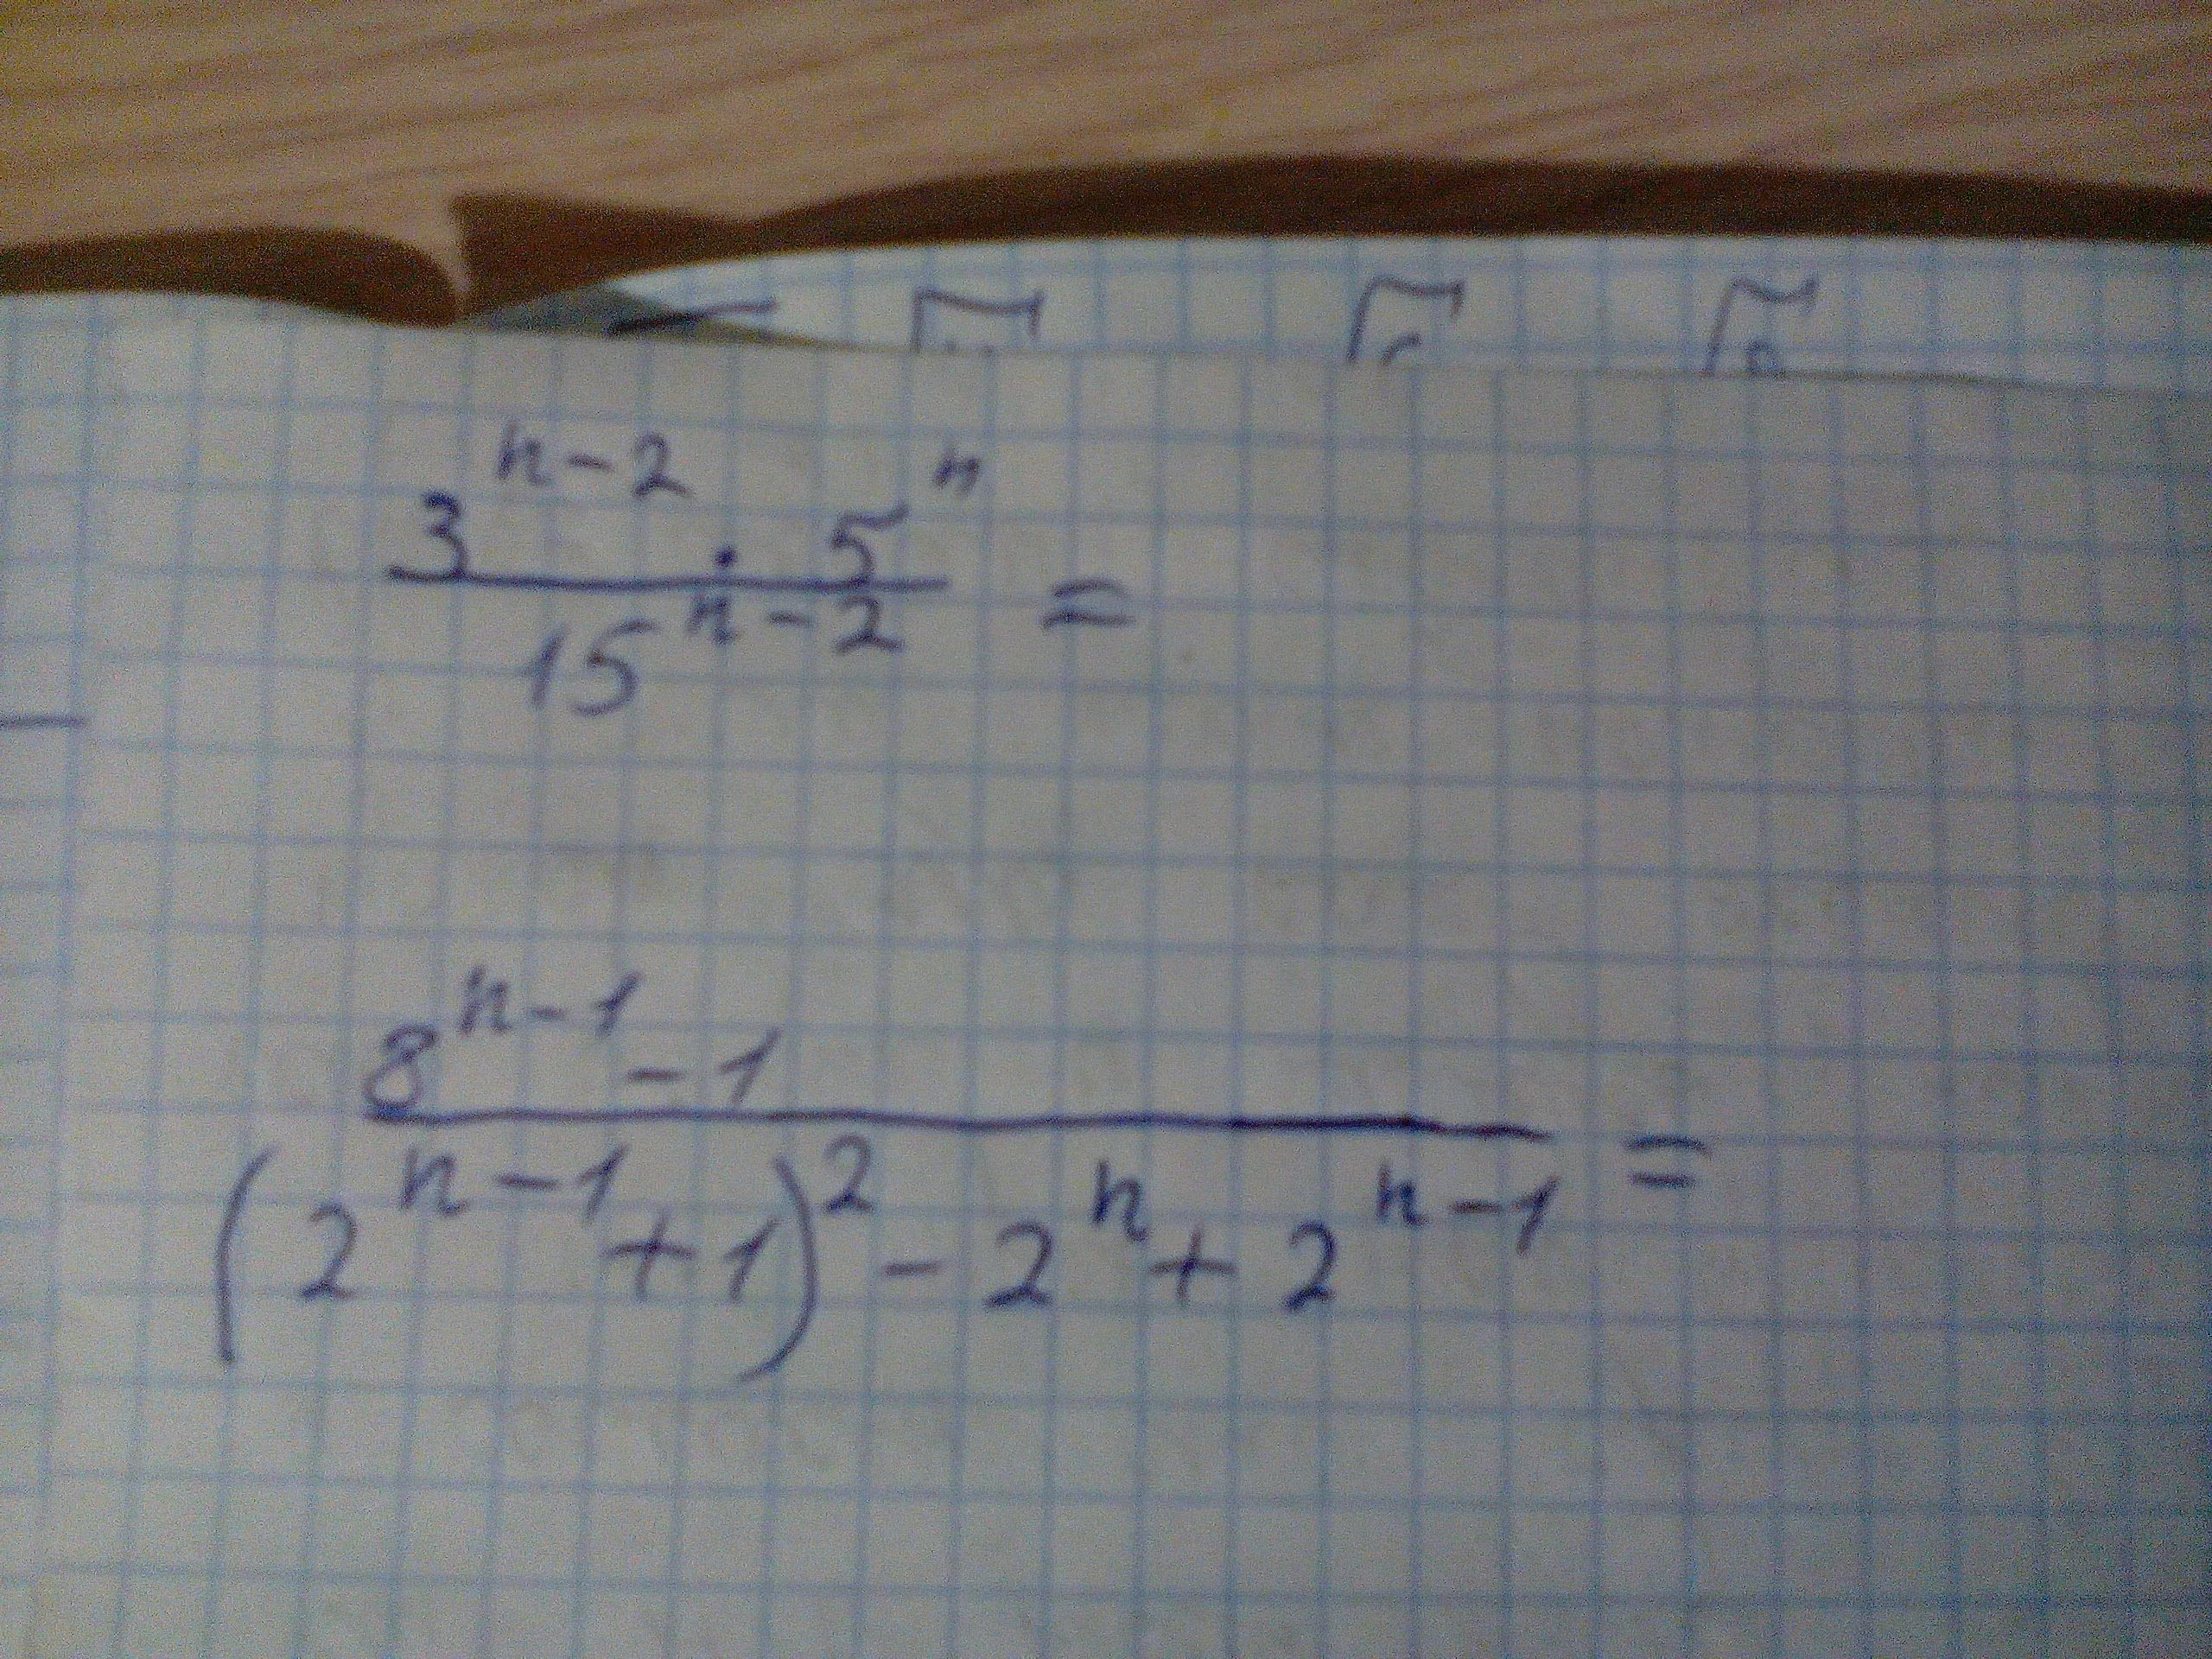 3^{n-2} · 5^n / 15^{n-2} =
8^{n-1} - 1 / (2^{n-1} + 1)^2 - 2^n + 2^{n-1} =